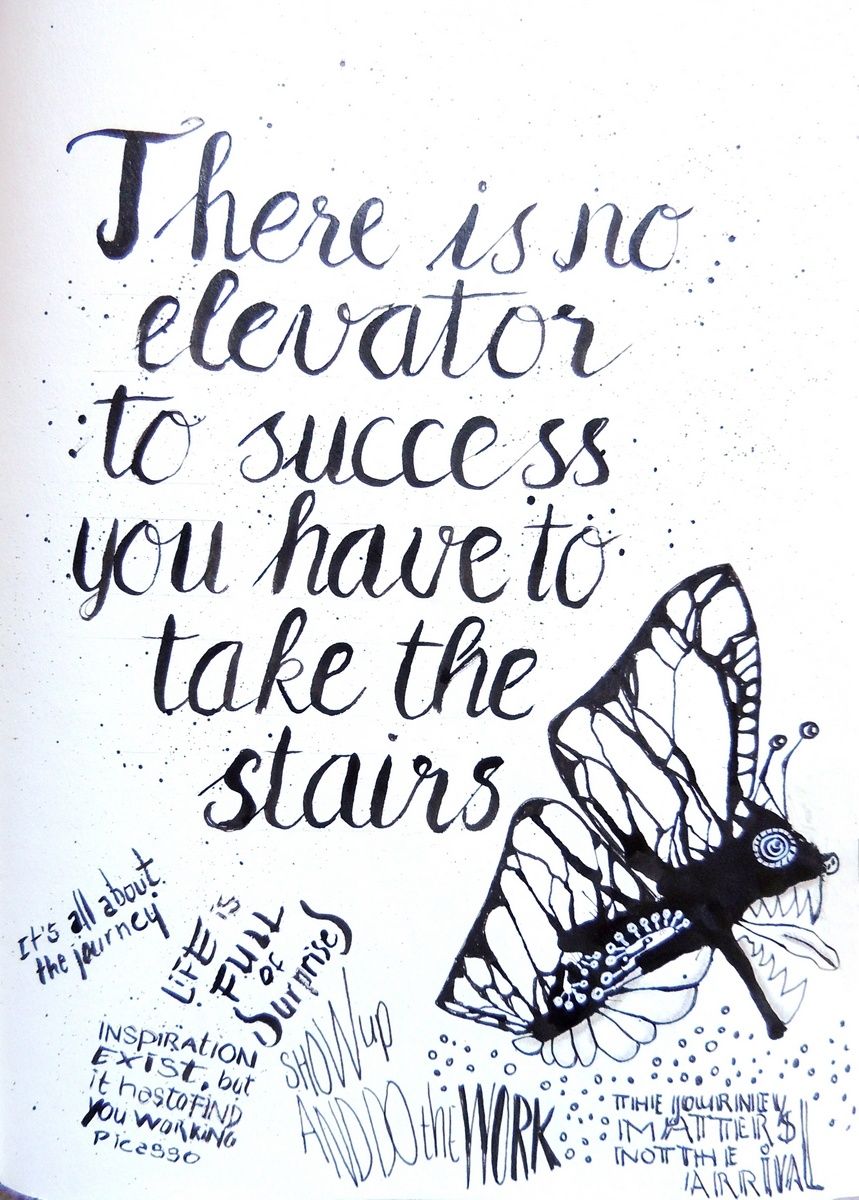 There is no
elevator
to success
you have to
take the
stairs
It's all about
the journey
LiFE is
FULL
OF
Surprises
INSPIRATION
EXIST, but
it hastoFIND
YOU WORKING
Picasso
SHOW up
AND DO the WORK
THE JOURNEY
MATTERS
NOT THE
ARRIVAL